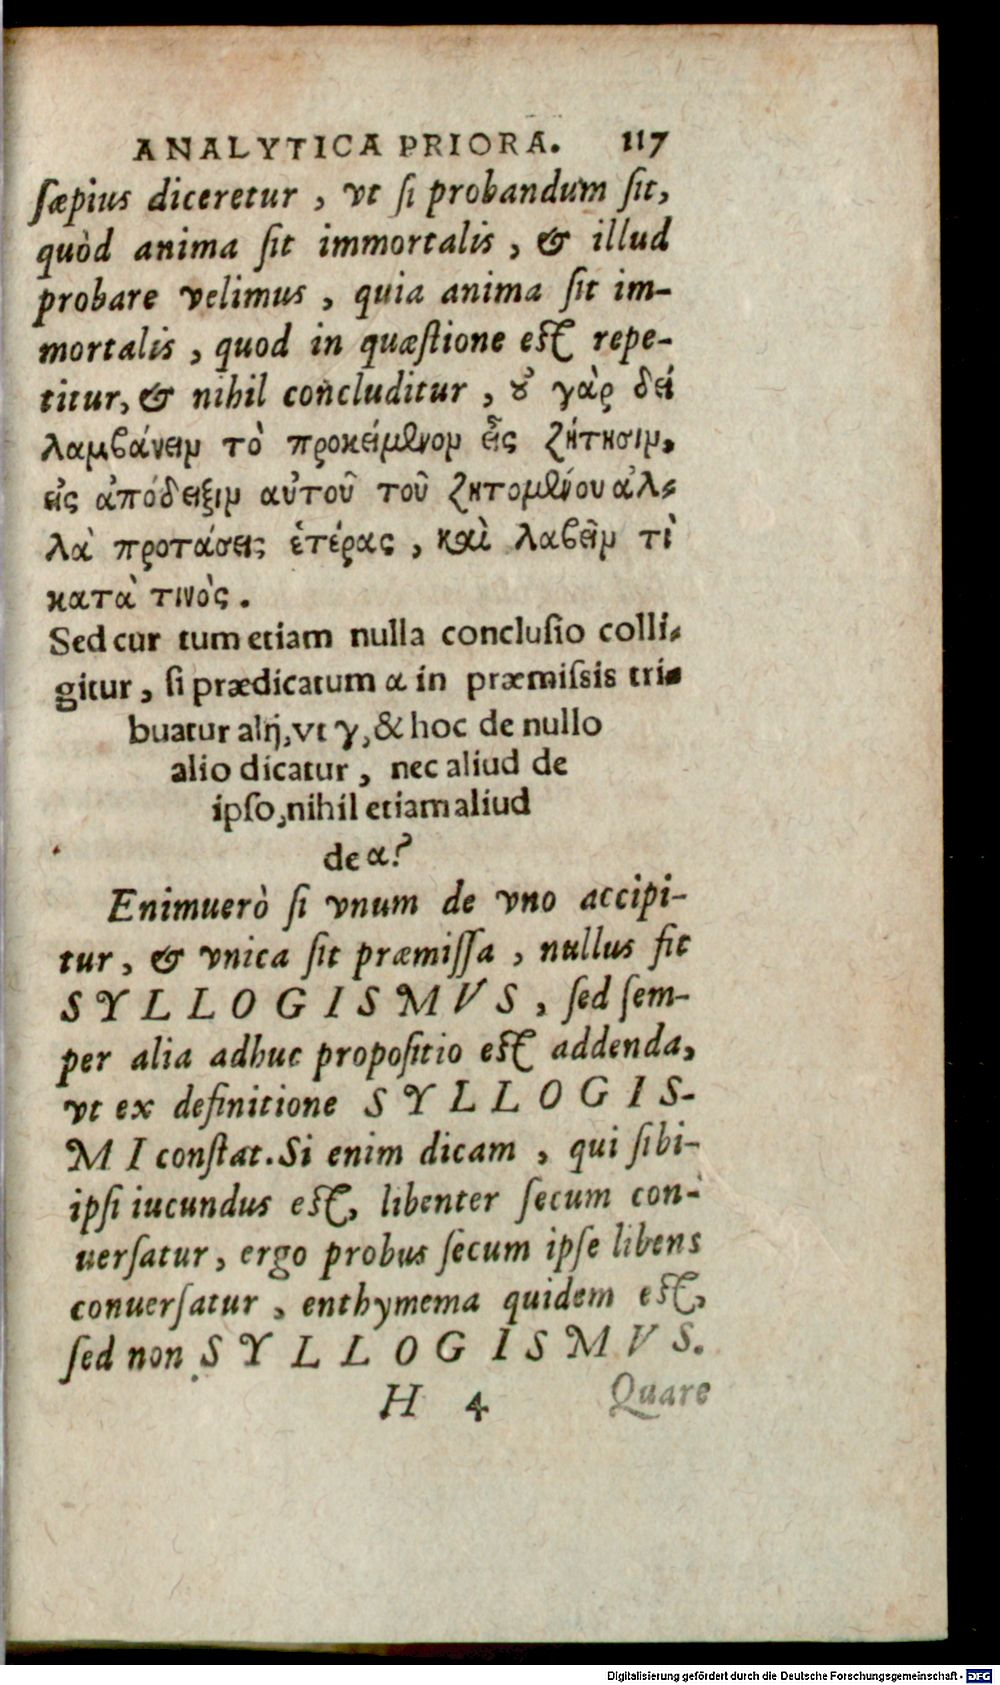 ANALYTICA PRIORA. 117
ſæpius diceretur, vt ſi probandum ſit,
quòd anima ſit immortalis, & illud
probare velimus, quia anima ſit im-
mortalis, quod in quæſtione eſt repe-
titur, & nihil concluditur, ȣ γὰρ δεί
λαμϐάνειν τὸ προκείμενον εἷς ζήτησιν,
εἰς ἀπόδειξιν αὐτοῦ τοῦ ζητομένου ἀλ-
λὰ προτάσεις ἑτέρας, καὶ λαϐεῖν τὶ
κατὰ τινὸς.
Sed cur tum etiam nulla concluſio colli-
gitur, ſi prædicatum α in præmiſsis tri-
buatur alij, vt γ, & hoc de nullo
alio dicatur, nec aliud de
ipſo, nihil etiam aliud
de α?
Enimuerò ſi vnum de vno accipi-
tur, & vnica ſit præmiſſa, nullus fit
SYLLOGISMVS, ſed ſem-
per alia adhuc propoſitio eſt addenda,
vt ex definitione SYLLOGIS-
MI conſtat. Si enim dicam, qui ſibi-
ipſi iucundus eſt, libenter ſecum con-
uerſatur, ergo probus ſecum ipſe libens
conuerſatur, enthymema quidem eſt,
ſed non SYLLOGISMVS.
H 4 Quare
Digitalisierung gefördert durch die Deutsche Forschungsgemeinschaft - DFG